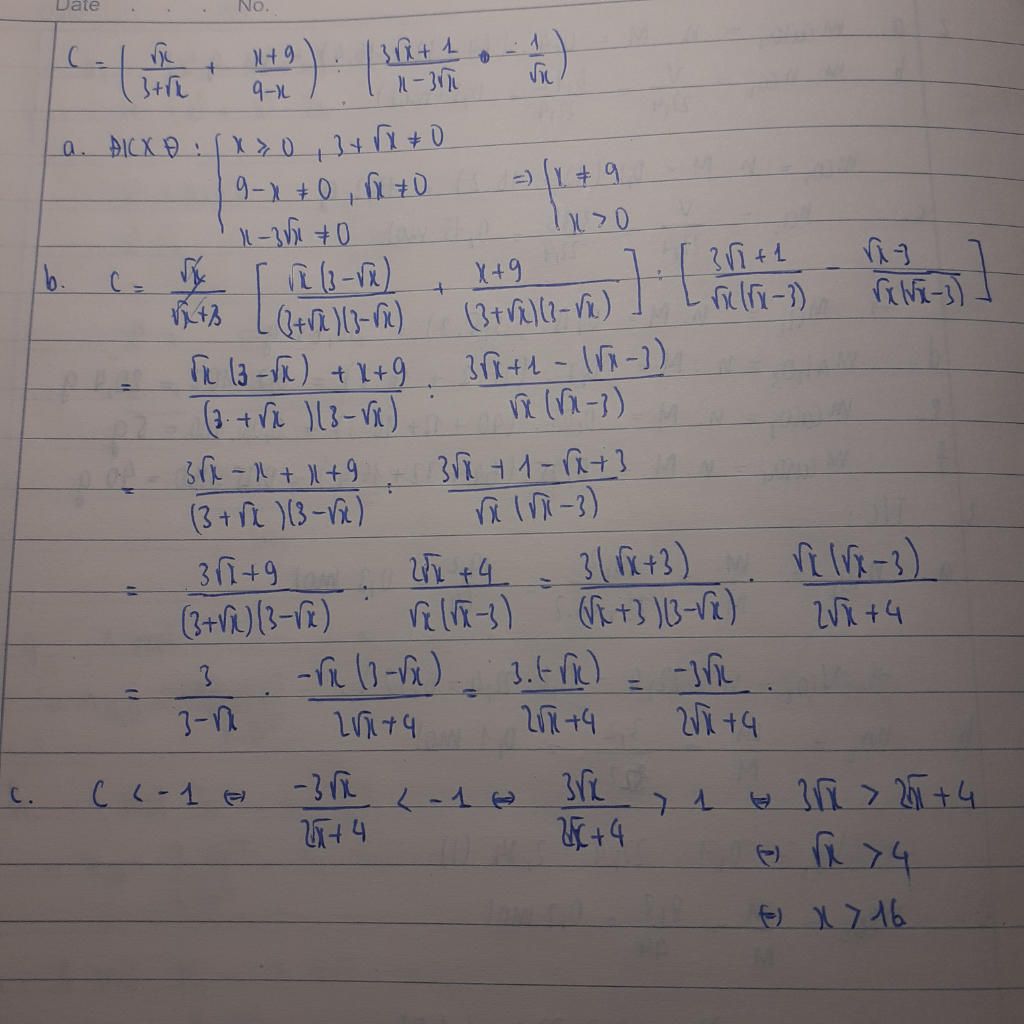 Date . . . No.
C = (√x/(3+√x) + (x+9)/(9-x)) : ((3√x+1)/(x-3√x) - 1/√x)
a. ĐKXĐ : { x ≥ 0 , 3+√x ≠ 0
9-x ≠ 0 , √x ≠ 0 => { x ≠ 9
x-3√x ≠ 0 x > 0
b. C = [√x(3-√x)/((3+√x)(3-√x)) + (x+9)/((3+√x)(3-√x))] : [(3√x+1)/(√x(√x-3)) - (√x-3)/(√x(√x-3))]
= (√x(3-√x)+x+9)/((3+√x)(3-√x)) : (3√x+1-(√x-3))/(√x(√x-3))
= (3√x-x+x+9)/((3+√x)(3-√x)) : (3√x+1-√x+3)/(√x(√x-3))
= (3√x+9)/((3+√x)(3-√x)) : (2√x+4)/(√x(√x-3)) = 3(√x+3)/((√x+3)(3-√x)) . √x(√x-3)/(2√x+4)
= 3/(3-√x) . -√x(3-√x)/(2√x+4) = 3.(-√x)/(2√x+4) = -3√x/(2√x+4) .
c. C < -1 ⇔ -3√x/(2√x+4) < -1 ⇔ 3√x/(2√x+4) > 1 ⇔ 3√x > 2√x+4
⇔ √x > 4
⇔ x > 16